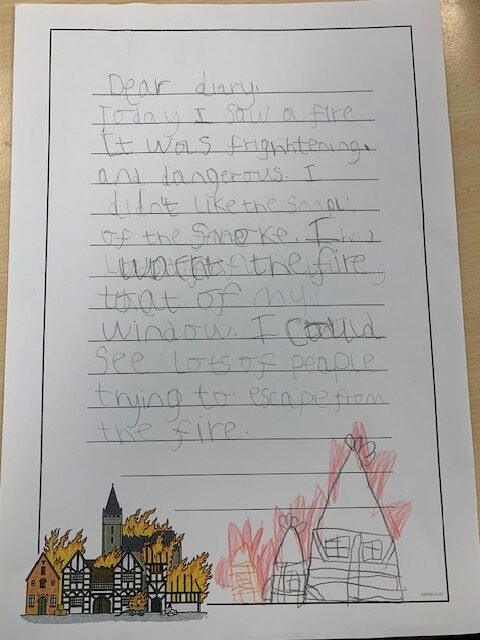 Dear diary.
Today I saw a fire
It was frightening.
and dangerous. I
didn't like the
of the smoke. I
the fire
that of my
window. I could
See Lots of people
trying to escape from
the fire.
twinkl.com